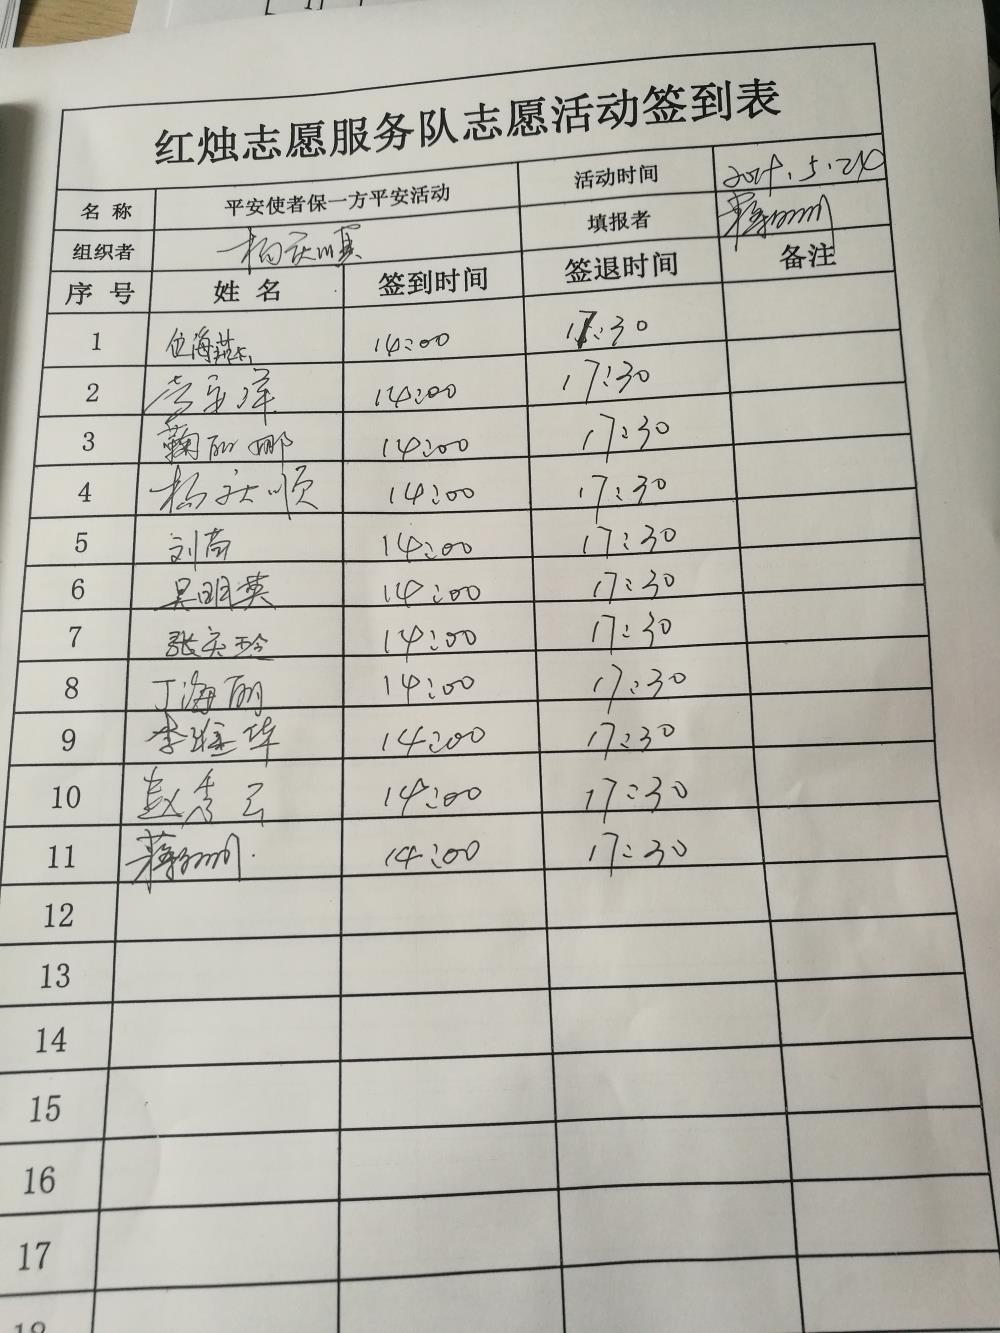 红烛志愿服务队志愿活动签到表
名 称 平安使者保一方平安活动 活动时间
组织者 填报者
序 号 姓 名 签到时间 签退时间 备注
1 位海燕 14:00 17:30
2 14:00 17:30
3 鞠丽娜 14:00 17:30
4 杨庆顺 14:00 17:30
5 刘苗 14:00 17:30
6 吴明英 14:00 17:30
7 张玲 14:00 17:30
8 丁海丽 14:00 17:30
9 李继华 14:00 17:30
10 赵秀云 14:00 17:30
11 14:00 17:30
12
13
14
15
16
17
18